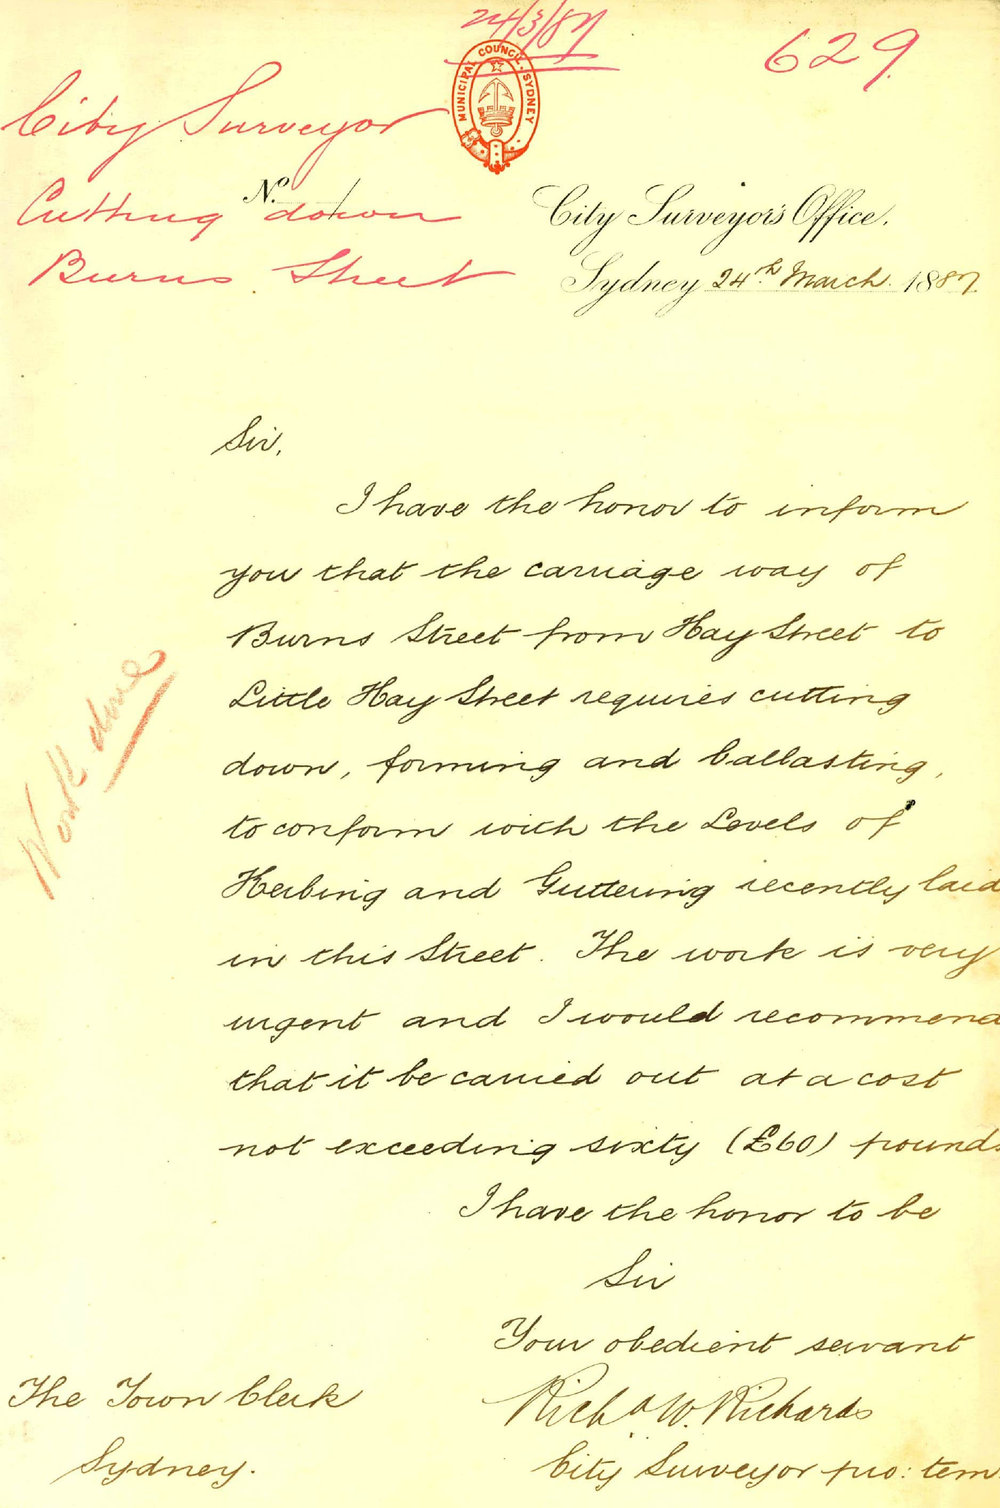 24/3/87
629
MUNICIPAL COUNCIL, SYDNEY
City Surveyor
Cutting down
Burns Street
No.
City Surveyor's Office.
Sydney 24th March 1887
Sir,
I have the honor to inform
you that the carriage way of
Burns Street from Hay Street to
Little Hay Street requires cutting
down, forming and ballasting,
to conform with the Levels of
Kerbing and Guttering recently laid
in this Street. The work is very
urgent and I would recommend
that it be carried out at a cost
not exceeding sixty (£60) pounds
Work done
I have the honor to be
Sir
Your obedient servant
Richd W. Richards
City Surveyor pro: tem
The Town Clerk
Sydney.